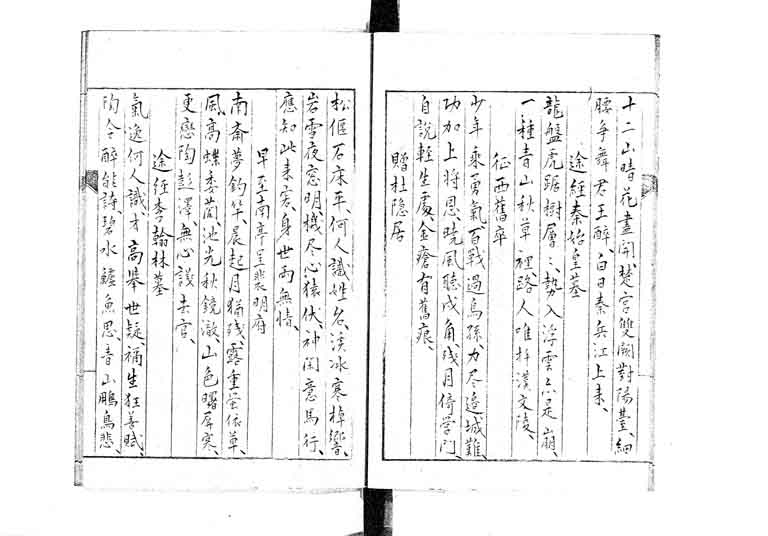 十二山晴花盡開楚宮雙闕對陽臺、細
腰爭舞君王醉、白日秦兵江上来、
途經秦始皇墓
龍盤虎踞樹層〻、勢入浮雲亦是崩、
一種青山秋草裡、路人唯拜漢文陵、
征西舊卒
少年乘勇氣、百戰過烏孫、力尽邊城難、
功加上將恩、曉風聽戍角、残月倚営門、
自說輕生處、金瘡有舊痕、
贈杜隐居
松偃石床平、何人識姓名、溪冰寒棹響、
岩雪夜窓明、機尽心猿伏、神闲意馬行、
應知此来客、身世両無情、
早至南亭呈裴明府
南斋夢釣竿、晨起月猶残、露重螢依草、
風高蝶委蘭、池光秋鏡澈、山色曙屏寒、
更戀陶彭澤、無心議去官、
途經李翰林墓
氣逸何人識、才高舉世疑、禰生狂善賦、
陶令醉能詩、碧水鱸魚思、青山鵩鳥悲、